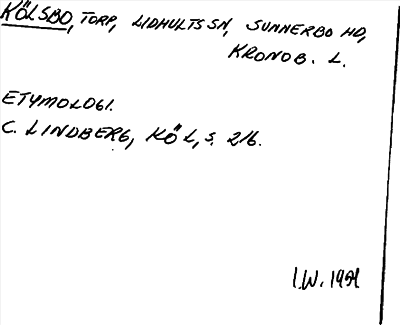 KÖLSBO, TORP, LIDHULTS SN, SUNNERBO HD,
KRONOB. L.
ETYMOLOGI.
C. LINDBERG, KÖL, S. 216.
I.W. 1991